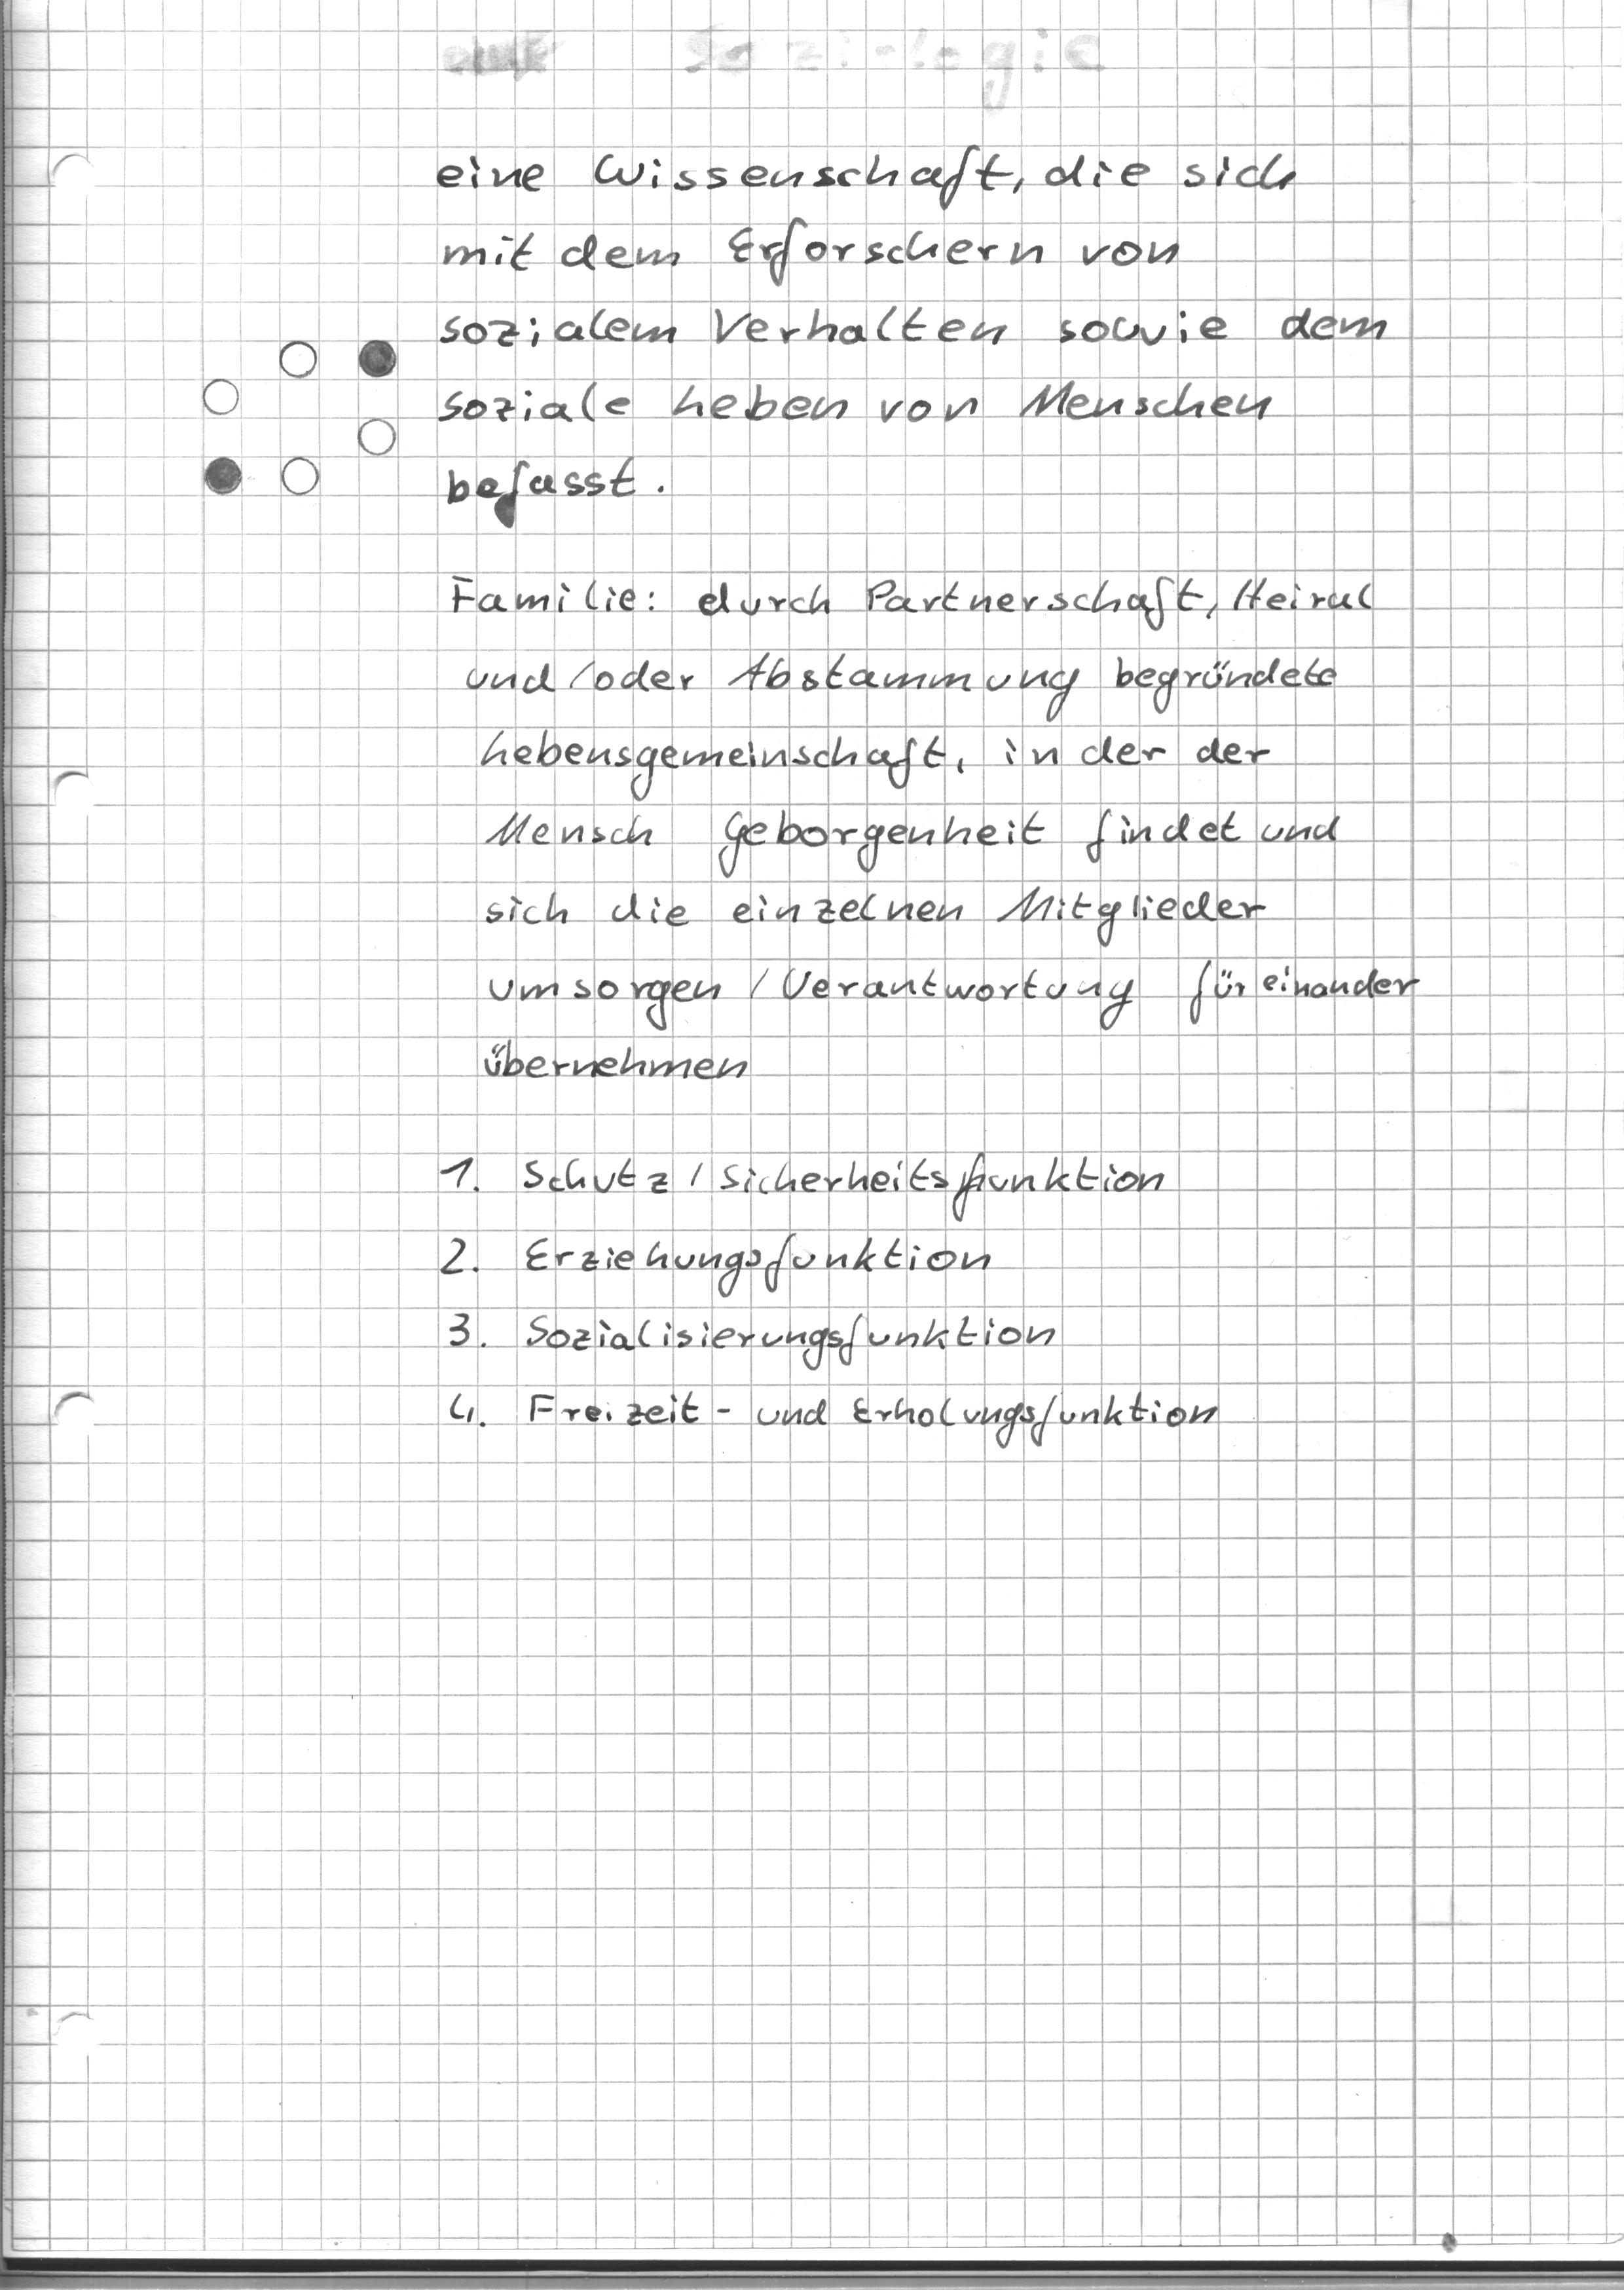 Soziologie
eine Wissenschaft, die sich
mit dem Erforschern von
sozialem Verhalten sowie dem
soziale Leben von Menschen
befasst.
Familie: durch Partnerschaft, Heirat
und/oder Abstammung begründete
Lebensgemeinschaft, in der der
Mensch Geborgenheit findet und
sich die einzelnen Mitglieder
umsorgen / Verantwortung füreinander
übernehmen
1. Schutz / Sicherheitsfunktion
2. Erziehungsfunktion
3. Sozialisierungsfunktion
4. Freizeit- und Erholungsfunktion